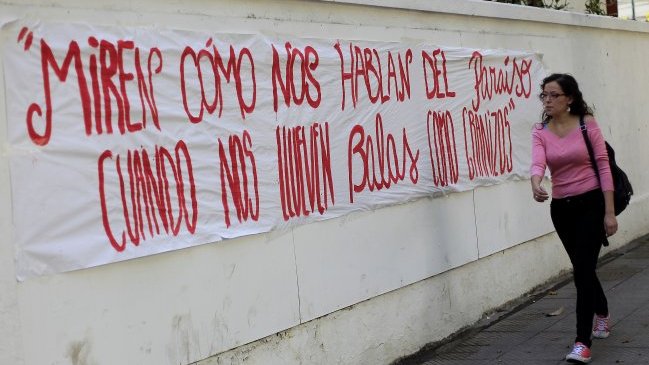 "MiREN CÓMO NOS HABLAN DEL Paraiso
CUANDO NOS llUEVEN Balas COMO GRANIZOS"